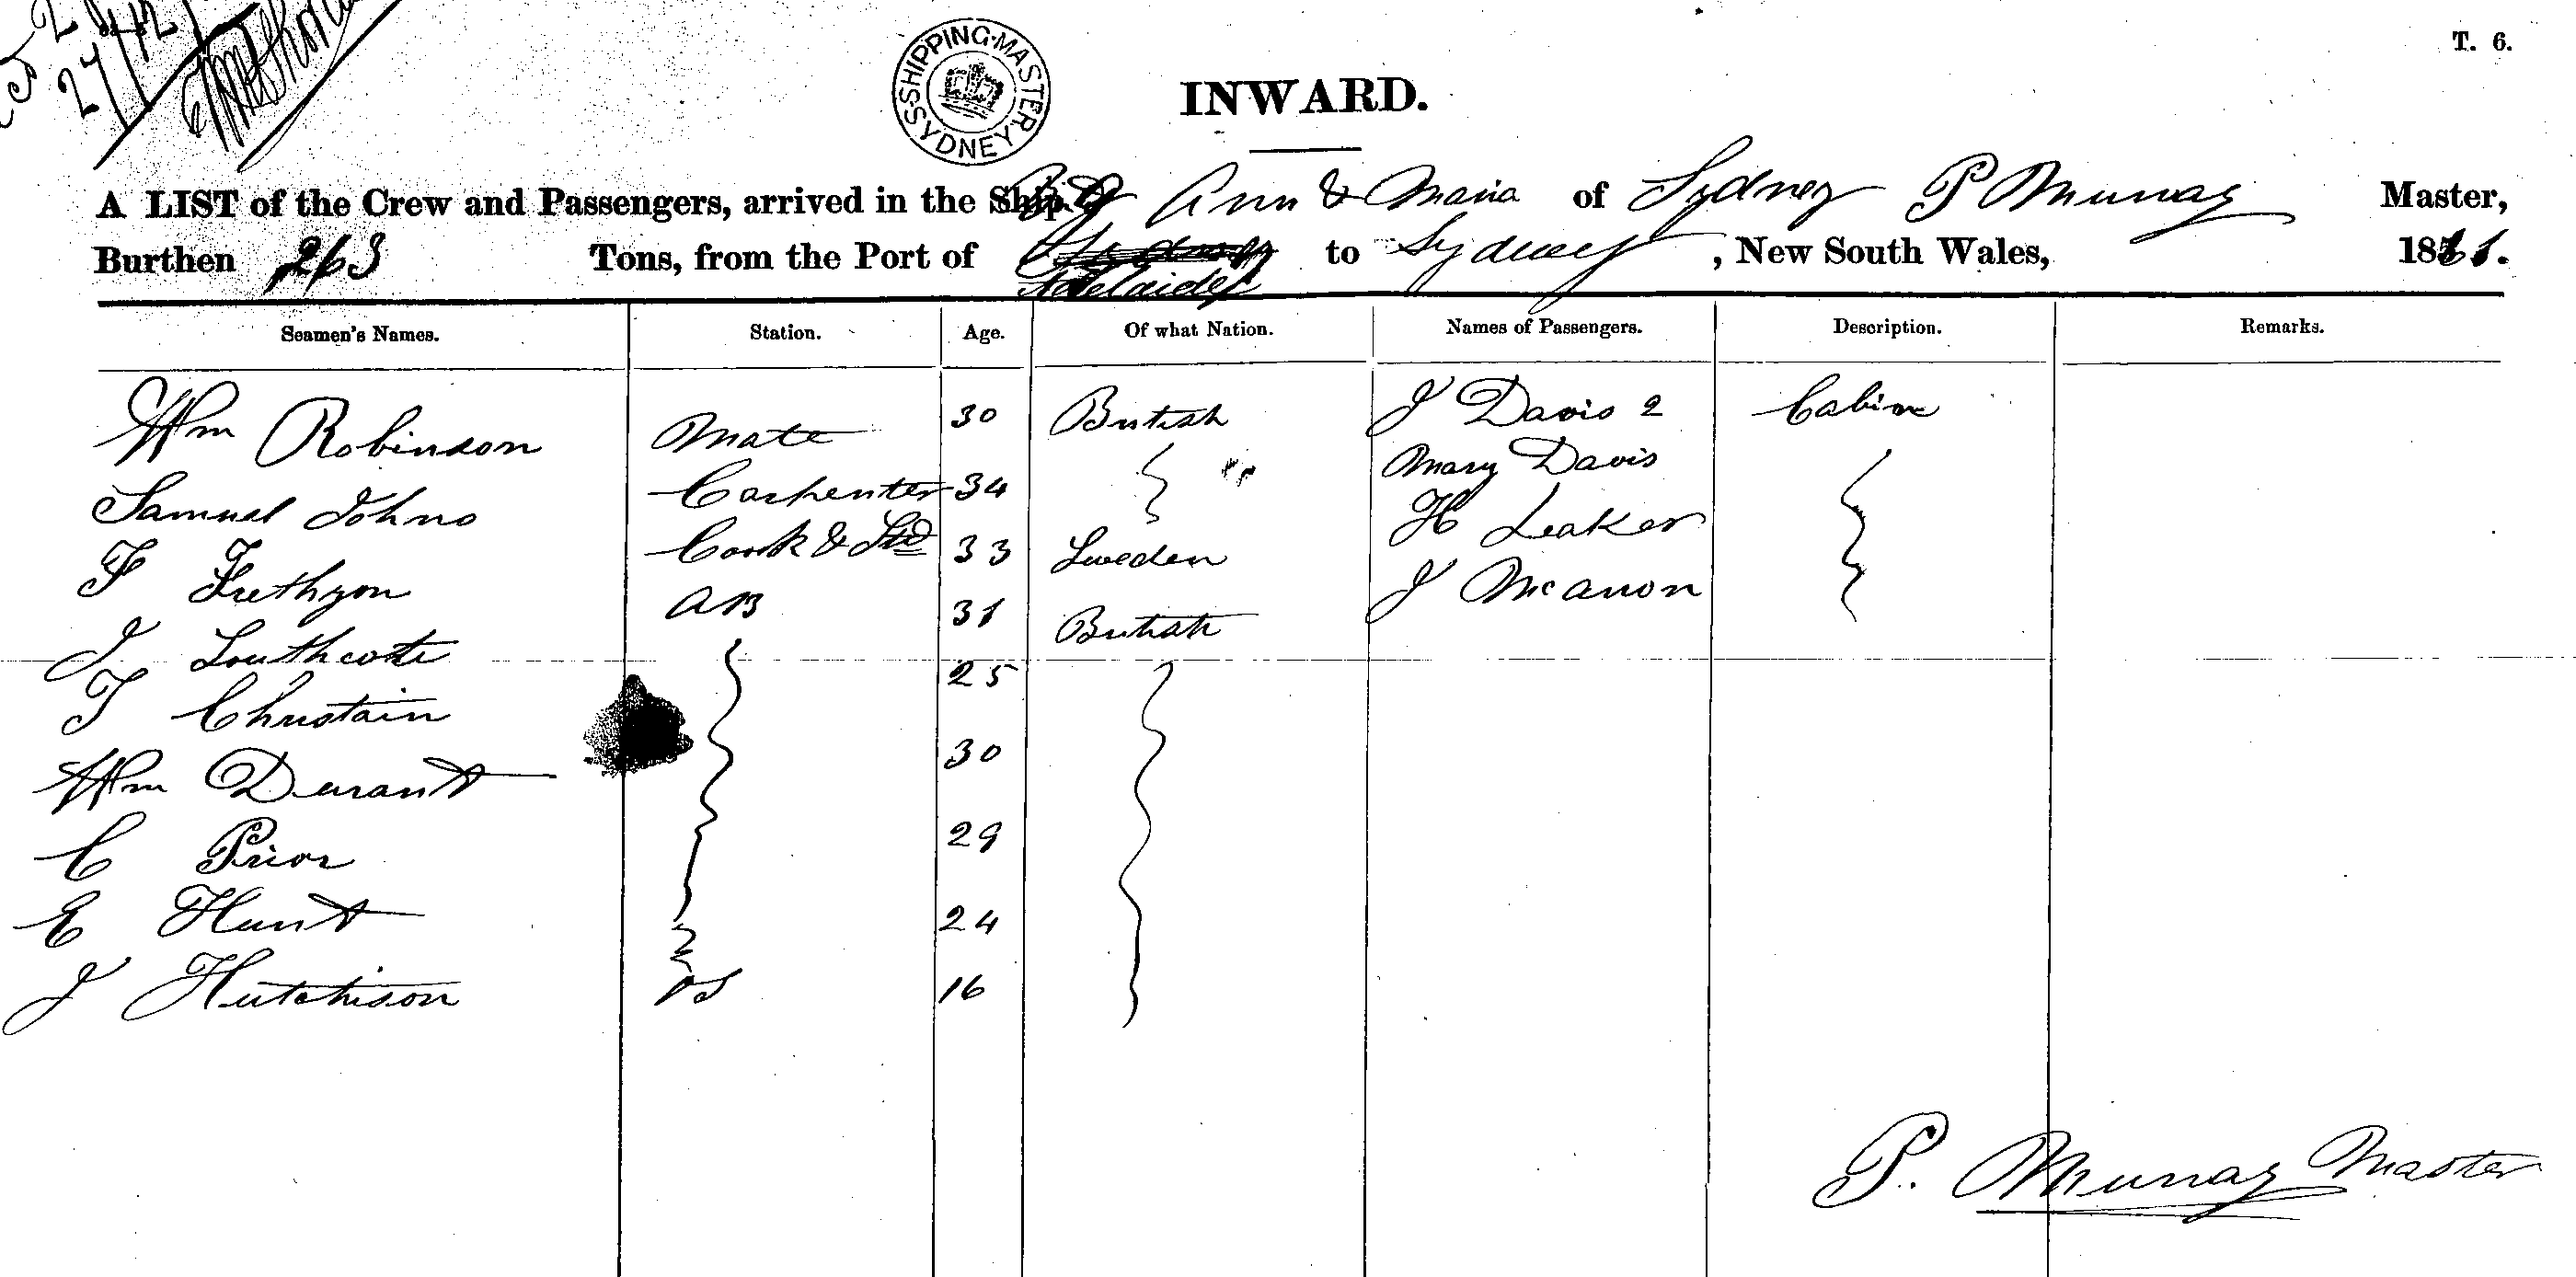 T. 6.
SHIPPING MASTER SYDNEY
INWARD.
A LIST of the Crew and Passengers, arrived in the Ship Ann & Maria of Sydney P Murray Master,
Burthen 263 Tons, from the Port of Adelaide to Sydney, New South Wales, 1861.
Seamen's Names. Station. Age. Of what Nation. Names of Passengers. Description. Remarks.
Wm Robinson Mate 30 British J Davis 2 Cabin
Samuel Johns Carpenter 34 Mary Davis
F Cook & Std 33 Sweden H Leaker
J Southcote AB 31 British J
T Christain 25
Wm Durant 30
C Prior 29
E Hunt 24
J Hutchison 16
P. Murray Master